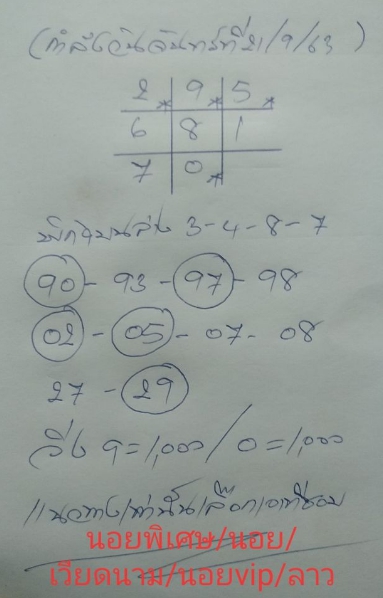 (กำลังวันจันทร์ที่21/9/63)
2 9 5
6 8 1
7 0
บนล่าง 3-4-8-7
90 - 93 - 97 - 98
02 - 05 - 07 - 08
27 - 29
วิ่ง 9=1,000/0=1,000
แนวทางเท่านั้นเลือกเอาที่ชอบ
นอยพิเศษ/นอย/
เวียดนาม/นอยvip/ลาว